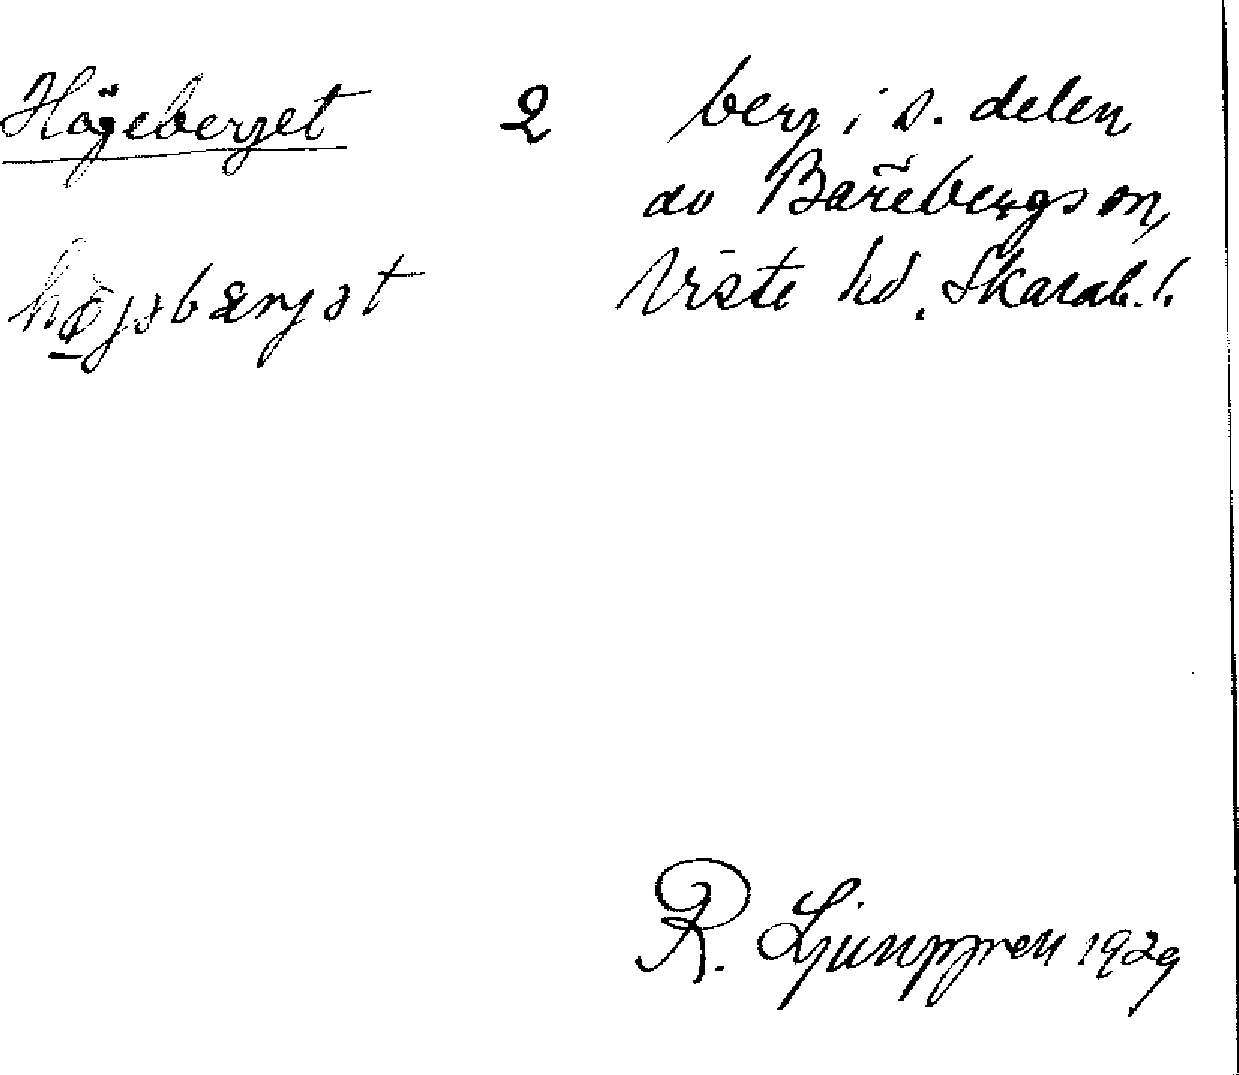 Högeberget 2 berg i s. delen
av Barebergs sn,
Viste hd. Skarab. l.
højəbærjət
R. Ljunggren 1929